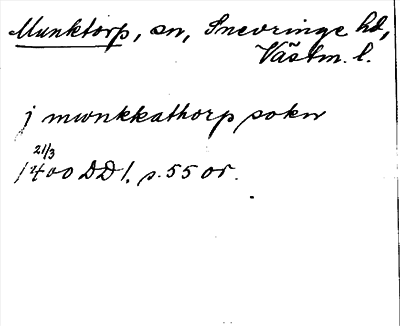 Munktorp, sn, Snevringe hd,
Västm. l.
j mwnkkathorp sokn
21/3
1400 DD 1. s. 55 or.